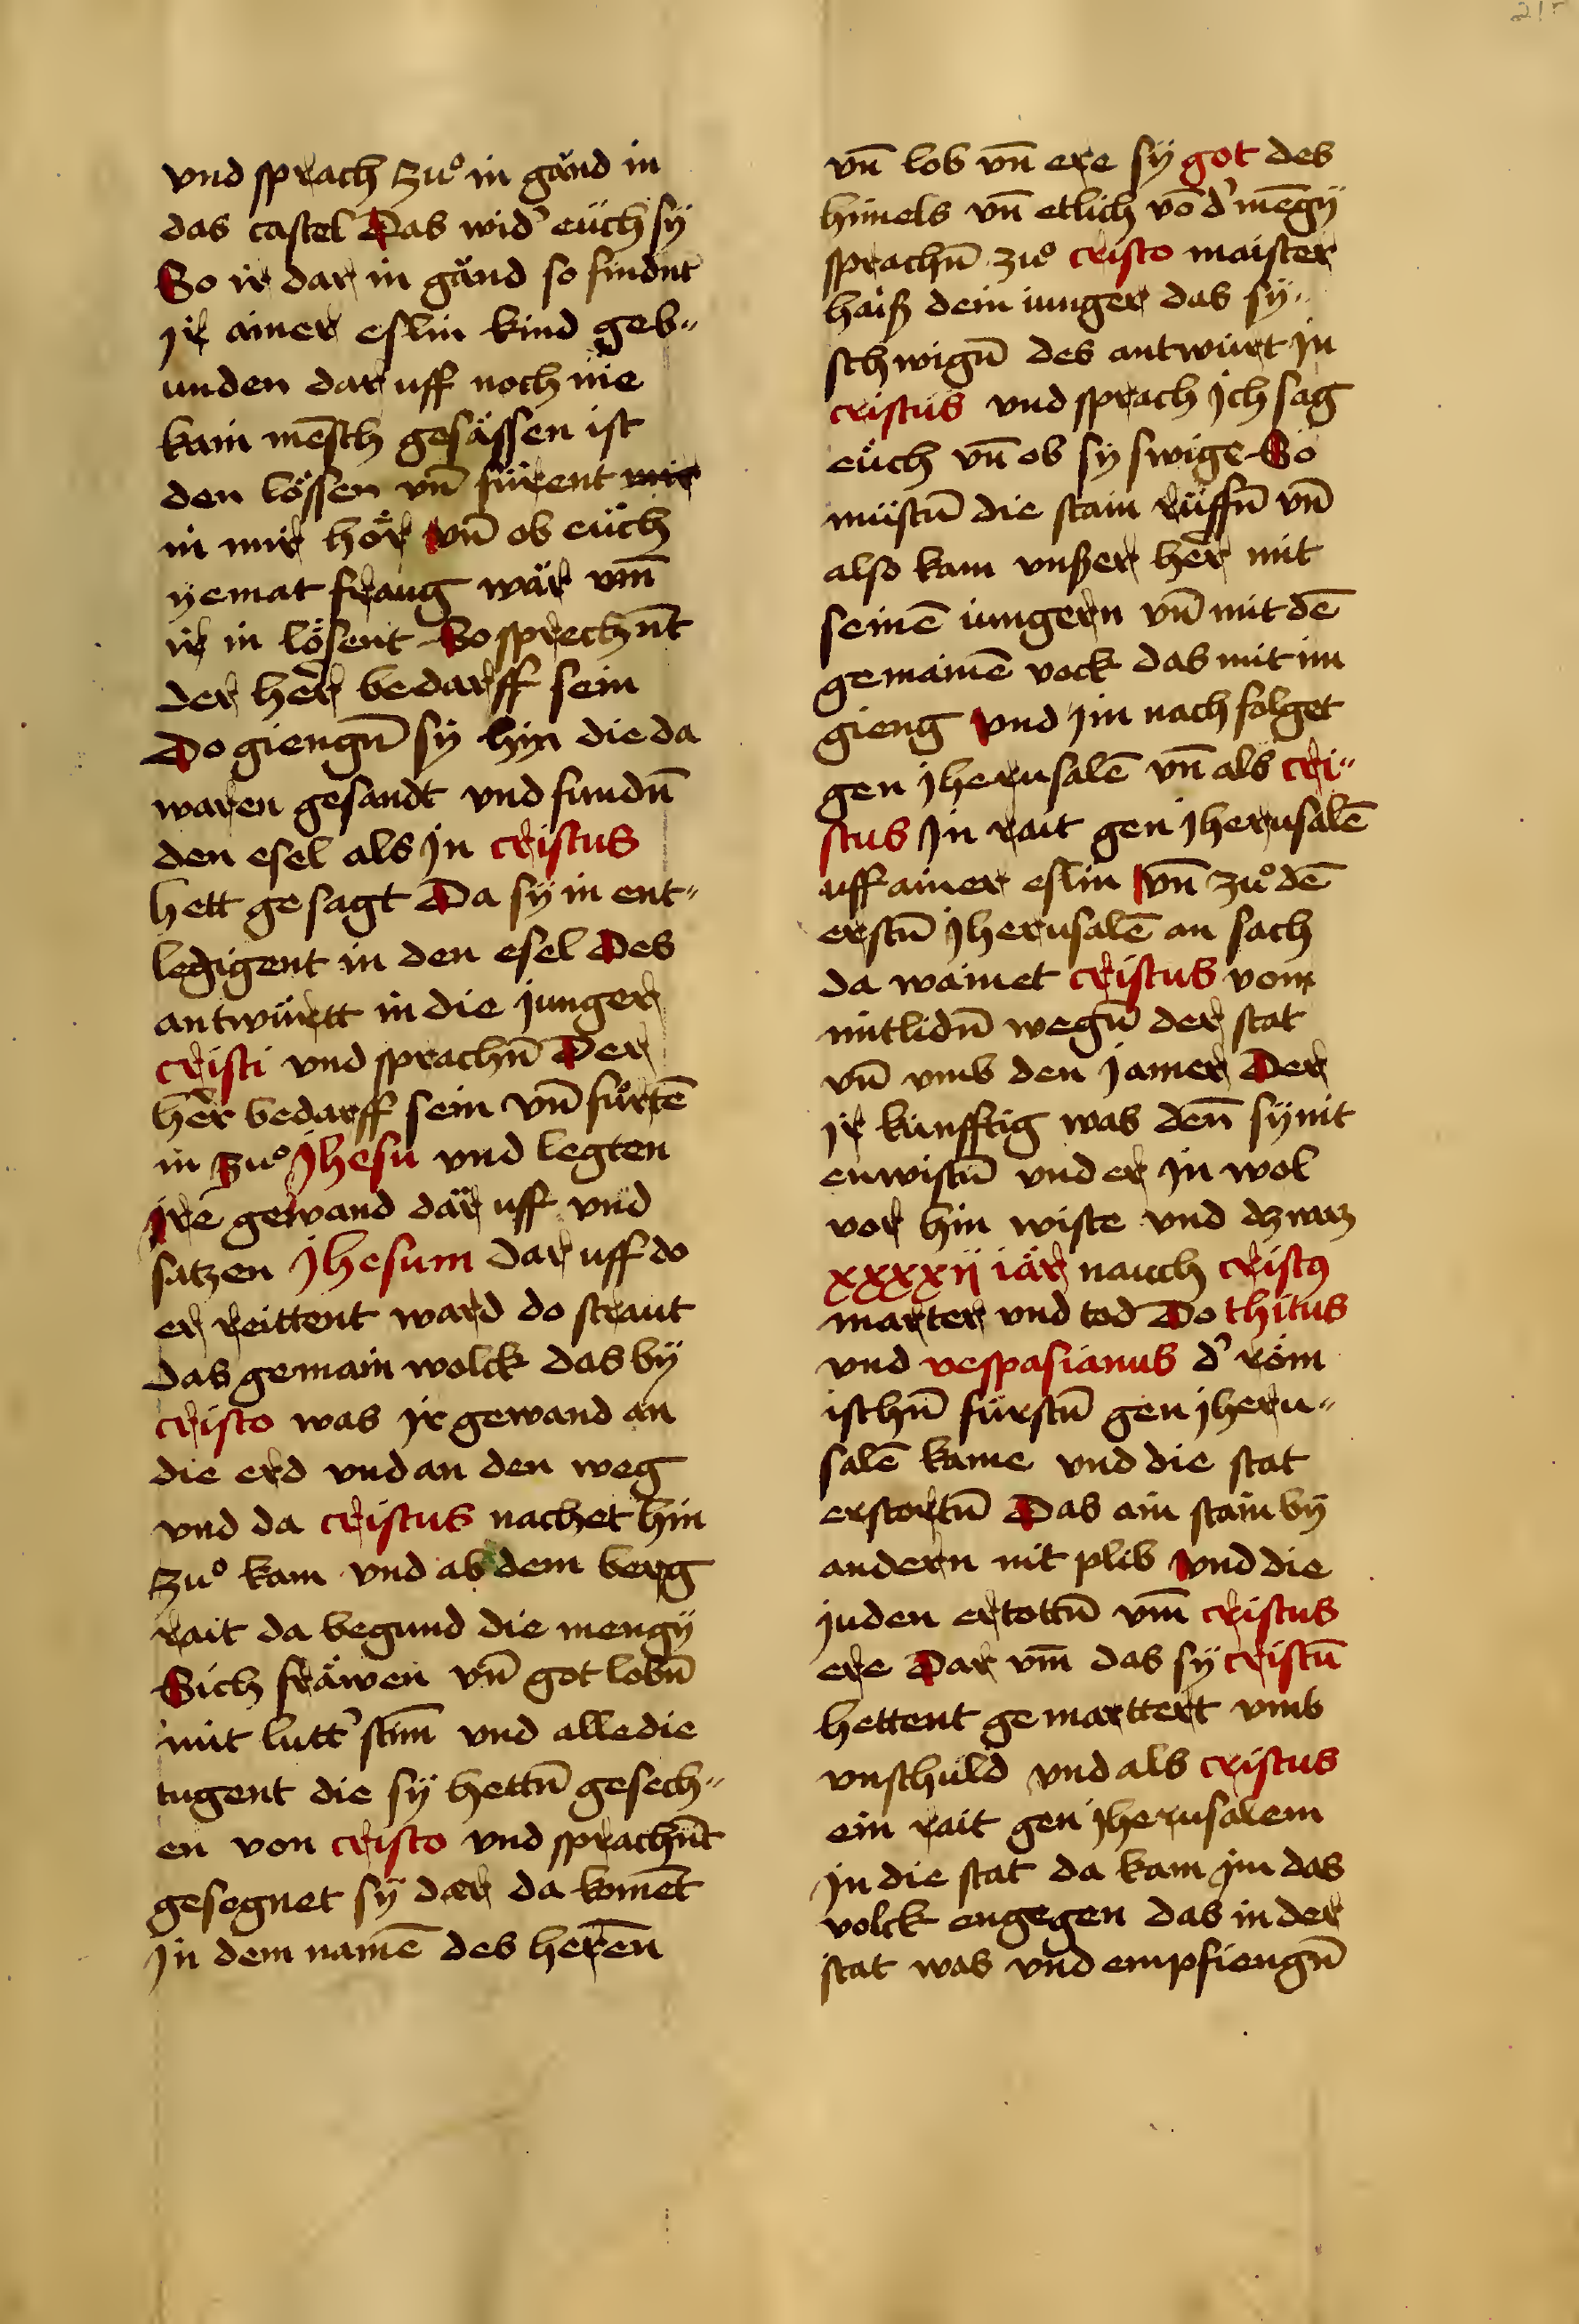 21r
vnd sprach zuͦ in gänd in
das castel Das wid' eüch sÿ
So ir dar in gänd so findnt
jr ainer eslin kind geb„
unden dar uff noch nie
kain mēsch gesässen ist
den lössen vn̄ fürent mir
in mir hör vn̄ ob eüch
yemat fraug wär vm̄
ir in lösent So sprechn̄t
der her bedarff sein
Do giengn̄ sÿ hin die da
waren gesandt vnd fundn̄
den esel als jn cristus
hett gesagt Da sÿ in ent„
ledigent in den esel Des
antwürtt in die junger
cristi vnd sprachn̄ Der
her bedarff sein vn̄ fürtē
in zuͦ jhesu vnd legten
jre gewand där uff vnd
satzen jhesum dar uff do
er reittent ward do straut
das gemain wolck das bÿ
cristo was jr gewand an
die erd vnd an den weg
vnd da cristus nachet hin
zuͦ kam vnd ab dem berg
rait da begund die mengÿ
Sich fräwen vn̄ got lobn̄
mit lutt' stim̄ vnd alle die
tugent die sÿ hettn̄ gesech„
en von cristo vnd sprachn̄t
gesegnet sÿ der da komēt
jn dem namē des herēn
vn̄ lob vn̄ ere sÿ got des
himels vn̄ etlich vō d' mēgÿ
sprachn̄ zuͦ cristo maister
haiß dein iunger das sÿ„
schwign̄ des antwürt jn
cristus vnd sprach jch sag
eüch vn̄ ob sÿ swige So
müstn̄ die stain rüffn̄ vn̄
also kam vnßer her mit
seinē iungern vn̄ mit dē
gemainē vock das mit im
gieng vnd jm nach folget
gen jherusalē vn̄ als cri„
stus jn rait gen jherusalē
uff ainer eslin vn̄ zuͦ dē
erstn̄ jherusalē an sach
da wainet cristus vom
mitlidn̄ wegn̄ der stat
vn̄ vmb den jamer Der
jr künfftig was den̄ sÿ nit
enwistn̄ vnd er jn wol
vor hin wiste vnd dz waz
xxxxij iär nauch cristꝯ
marter vnd tod Do thitus
vnd vespasianus d' röm
ischn̄ fürstn̄ gen jheru„
salē kame vnd die stat
erstortn̄ Das ain stain bÿ
andern nit plib vnd die
juden ertottn̄ vm̄ cristus
ere Dar vm̄ das sÿ cristū
hettent gemarttert vmb
vnschuld vnd als cristus
ein rait gen jherusalem
jn die stat da kam jm das
volck engegen das in der
stat was vnd empfiengn̄